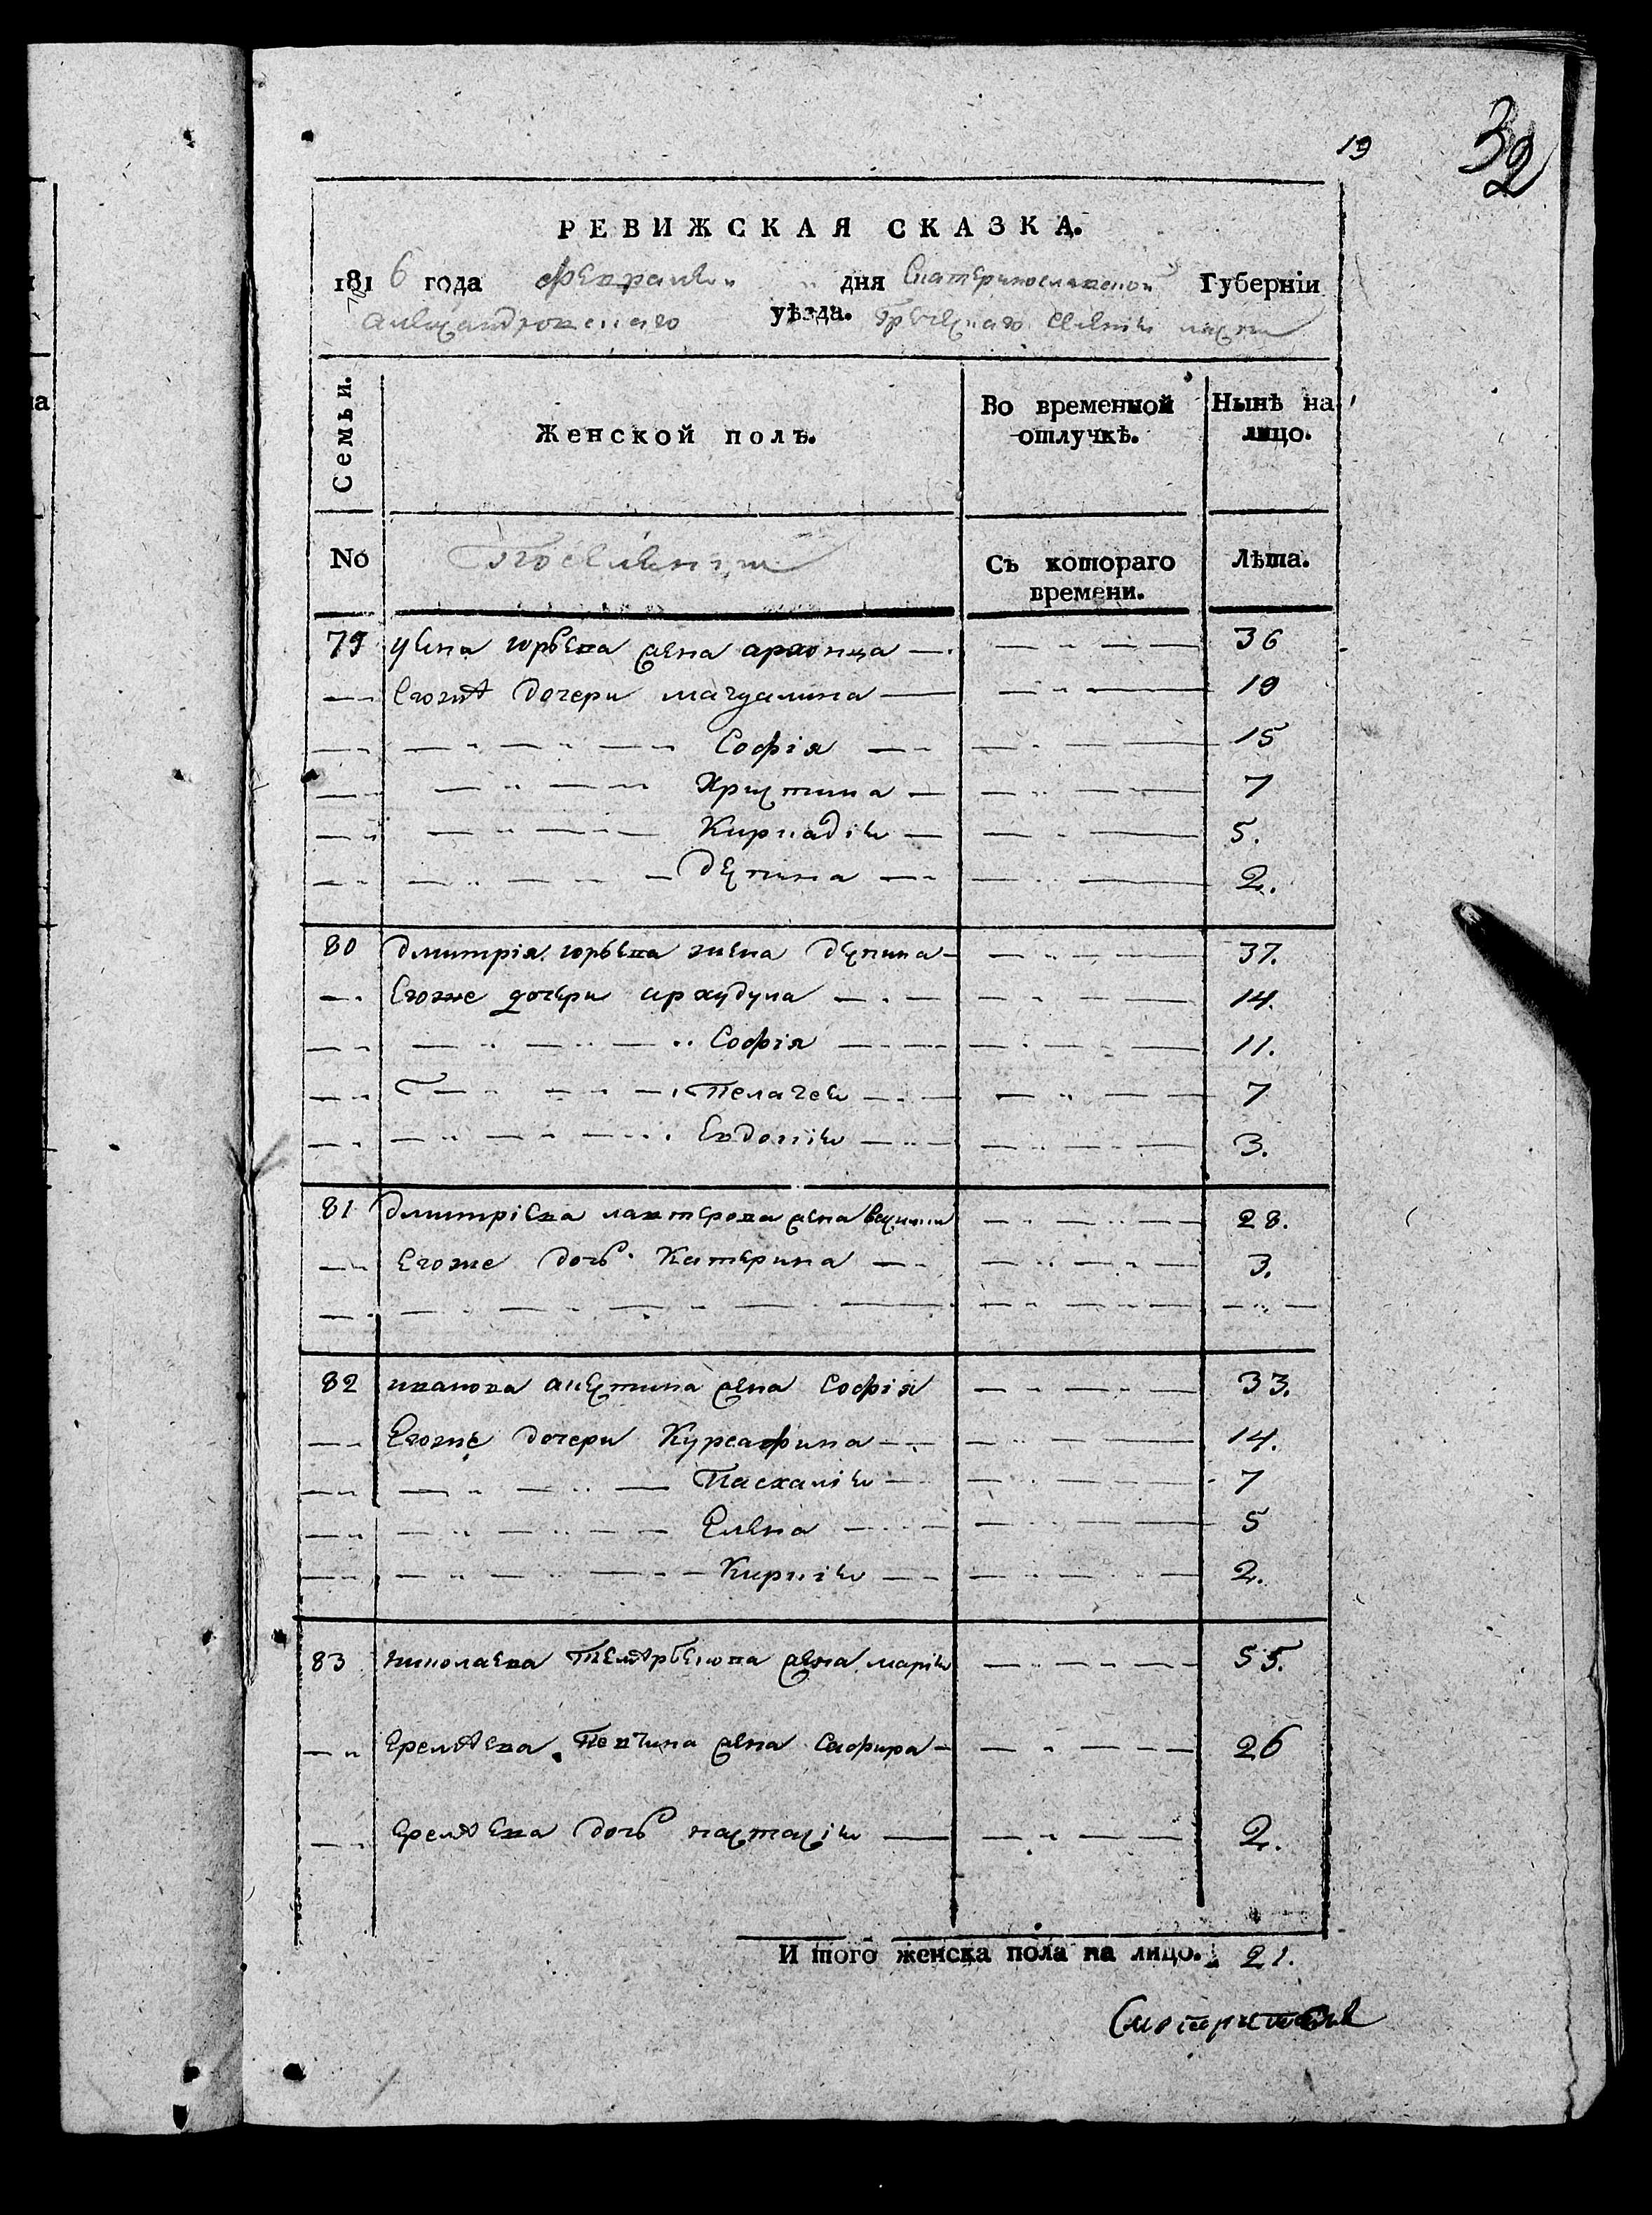 19
32
РЕВИЖСКАЯ СКАЗКА.
1816 года Февраля дня Екатеринославской Губерніи
Александровскаго уѣзда. Греческаго селенія
Семьи.
Женской полъ.
Во временной отлучкѣ.
Нынѣ на лицо.
№
Поселянки
Съ котораго времени.
Лѣта.
79 юрьева жена архонца — 36
Егожъ дочери магдалина — 19
Софія — 15
Христина — 7
Кириадія — 5.
деспина — 2.
80 дмитрія юрьева жена деспина — 37.
Егоже дочери архудула — 14.
Софія — 11.
Пелагея — 7
Евдокія — 3.
81 дмитріева жена — 28.
Егоже дочь Катерина — 3.
82 иванова жена Софія — 33.
Егоже дочери Курсафина — 14.
Пасхалія — 7
Елена — 5
Кирикія — 2.
83 николаева жена марія — 55.
Еремѣева жена Сафира — 26
Еремѣева дочь настасія — 2.
И того женска пола на лицо. 21.
Смотритель